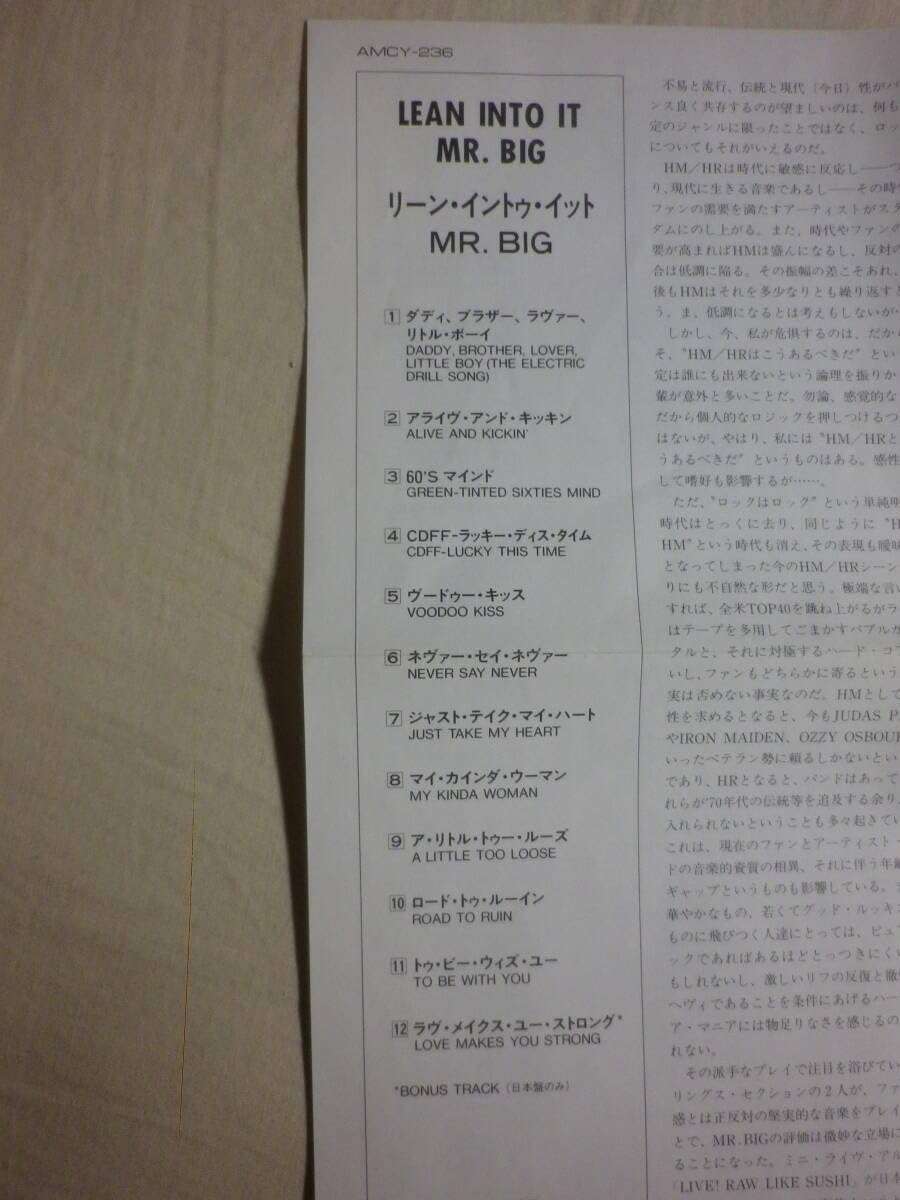 AMCY-236
LEAN INTO IT
MR. BIG
リーン・イントゥ・イット
MR. BIG
1 ダディ、ブラザー、ラヴァー、
リトル・ボーイ
DADDY, BROTHER, LOVER,
LITTLE BOY (THE ELECTRIC
DRILL SONG)
2 アライヴ・アンド・キッキン
ALIVE AND KICKIN'
3 60'S マインド
GREEN-TINTED SIXTIES MIND
4 CDFF-ラッキー・ディス・タイム
CDFF-LUCKY THIS TIME
5 ヴードゥー・キッス
VOODOO KISS
6 ネヴァー・セイ・ネヴァー
NEVER SAY NEVER
7 ジャスト・テイク・マイ・ハート
JUST TAKE MY HEART
8 マイ・カインダ・ウーマン
MY KINDA WOMAN
9 ア・リトル・トゥー・ルーズ
A LITTLE TOO LOOSE
10 ロード・トゥ・ルーイン
ROAD TO RUIN
11 トゥ・ビー・ウィズ・ユー
TO BE WITH YOU
12 ラヴ・メイクス・ユー・ストロング*
LOVE MAKES YOU STRONG
*BONUS TRACK (日本盤のみ)
不易と流行、伝統と現代(今日)性がバ
ンス良く共存するのが望ましいのは、何も
定のジャンルに限ったことではなく、ロッ
についてもそれがいえるのだ。
HM/HRは時代に敏感に反応し——つ
り、現代に生きる音楽であるし——その時
ファンの需要を満たすアーティストがスタ
ダムにのし上がる。また、時代やファンの
要が高まればHMは盛んになるし、反対の
合は低調に陥る。その振幅の差こそあれ、
後もHMはそれを多少なりとも繰り返すと
う。ま、低調になるとは考えもしないが…
しかし、今、私が危惧するのは、だから
そ、"HM/HRはこうあるべきだ"とい
定は誰にも出来ないという論理を振りか
輩が意外と多いことだ。勿論、感覚的な
だから個人的なロジックを押しつけるつ
はないが、やはり、私には"HM/HRと
うあるべきだ"というものはある。感性
して嗜好も影響するが……。
ただ、"ロックはロック"という単純明
時代はとっくに去り、同じように"H
HM"という時代も消え、その表現も曖昧
となってしまった今のHM/HRシーン
りにも不自然な形だと思う。極端な言い
すれば、全米TOP40を跳ね上がるがラ
はテープを多用してごまかすバブルガ
タルと、それに対極するハード・コア
いし、ファンもどちらかに寄るという
実は否めない事実なのだ。HMとして
性を求めるとなると、今もJUDAS P
やIRON MAIDEN、OZZY OSBOU
いったベテラン勢に頼るしかないとい
であり、HRとなると、バンドはあって
れらが'70年代の伝統等を追及する余り
入れられないということも多々起きてい
これは、現在のファンとアーティスト・
ドの音楽的資質の相異、それに伴う年齢
ギャップというものも影響している。ま
華やかなもの、若くてグッド・ルッキ
ものに飛びつく人達にとっては、ピュ
ックであればあるほどとっつきにくい
もしれないし、激しいリフの反復と徹
ヘヴィであることを条件にあげるハー
ア・マニアには物足りなさを感じるの
れない。
その派手なプレイで注目を浴びてい
リングス・セクションの2人が、ファ
感とは正反対の堅実的な音楽をプレイ
とで、MR.BIGの評価は微妙な立場に
ることになった。ミニ・ライヴ・アル
「LIVE! RAW LIKE SUSHI」が日本